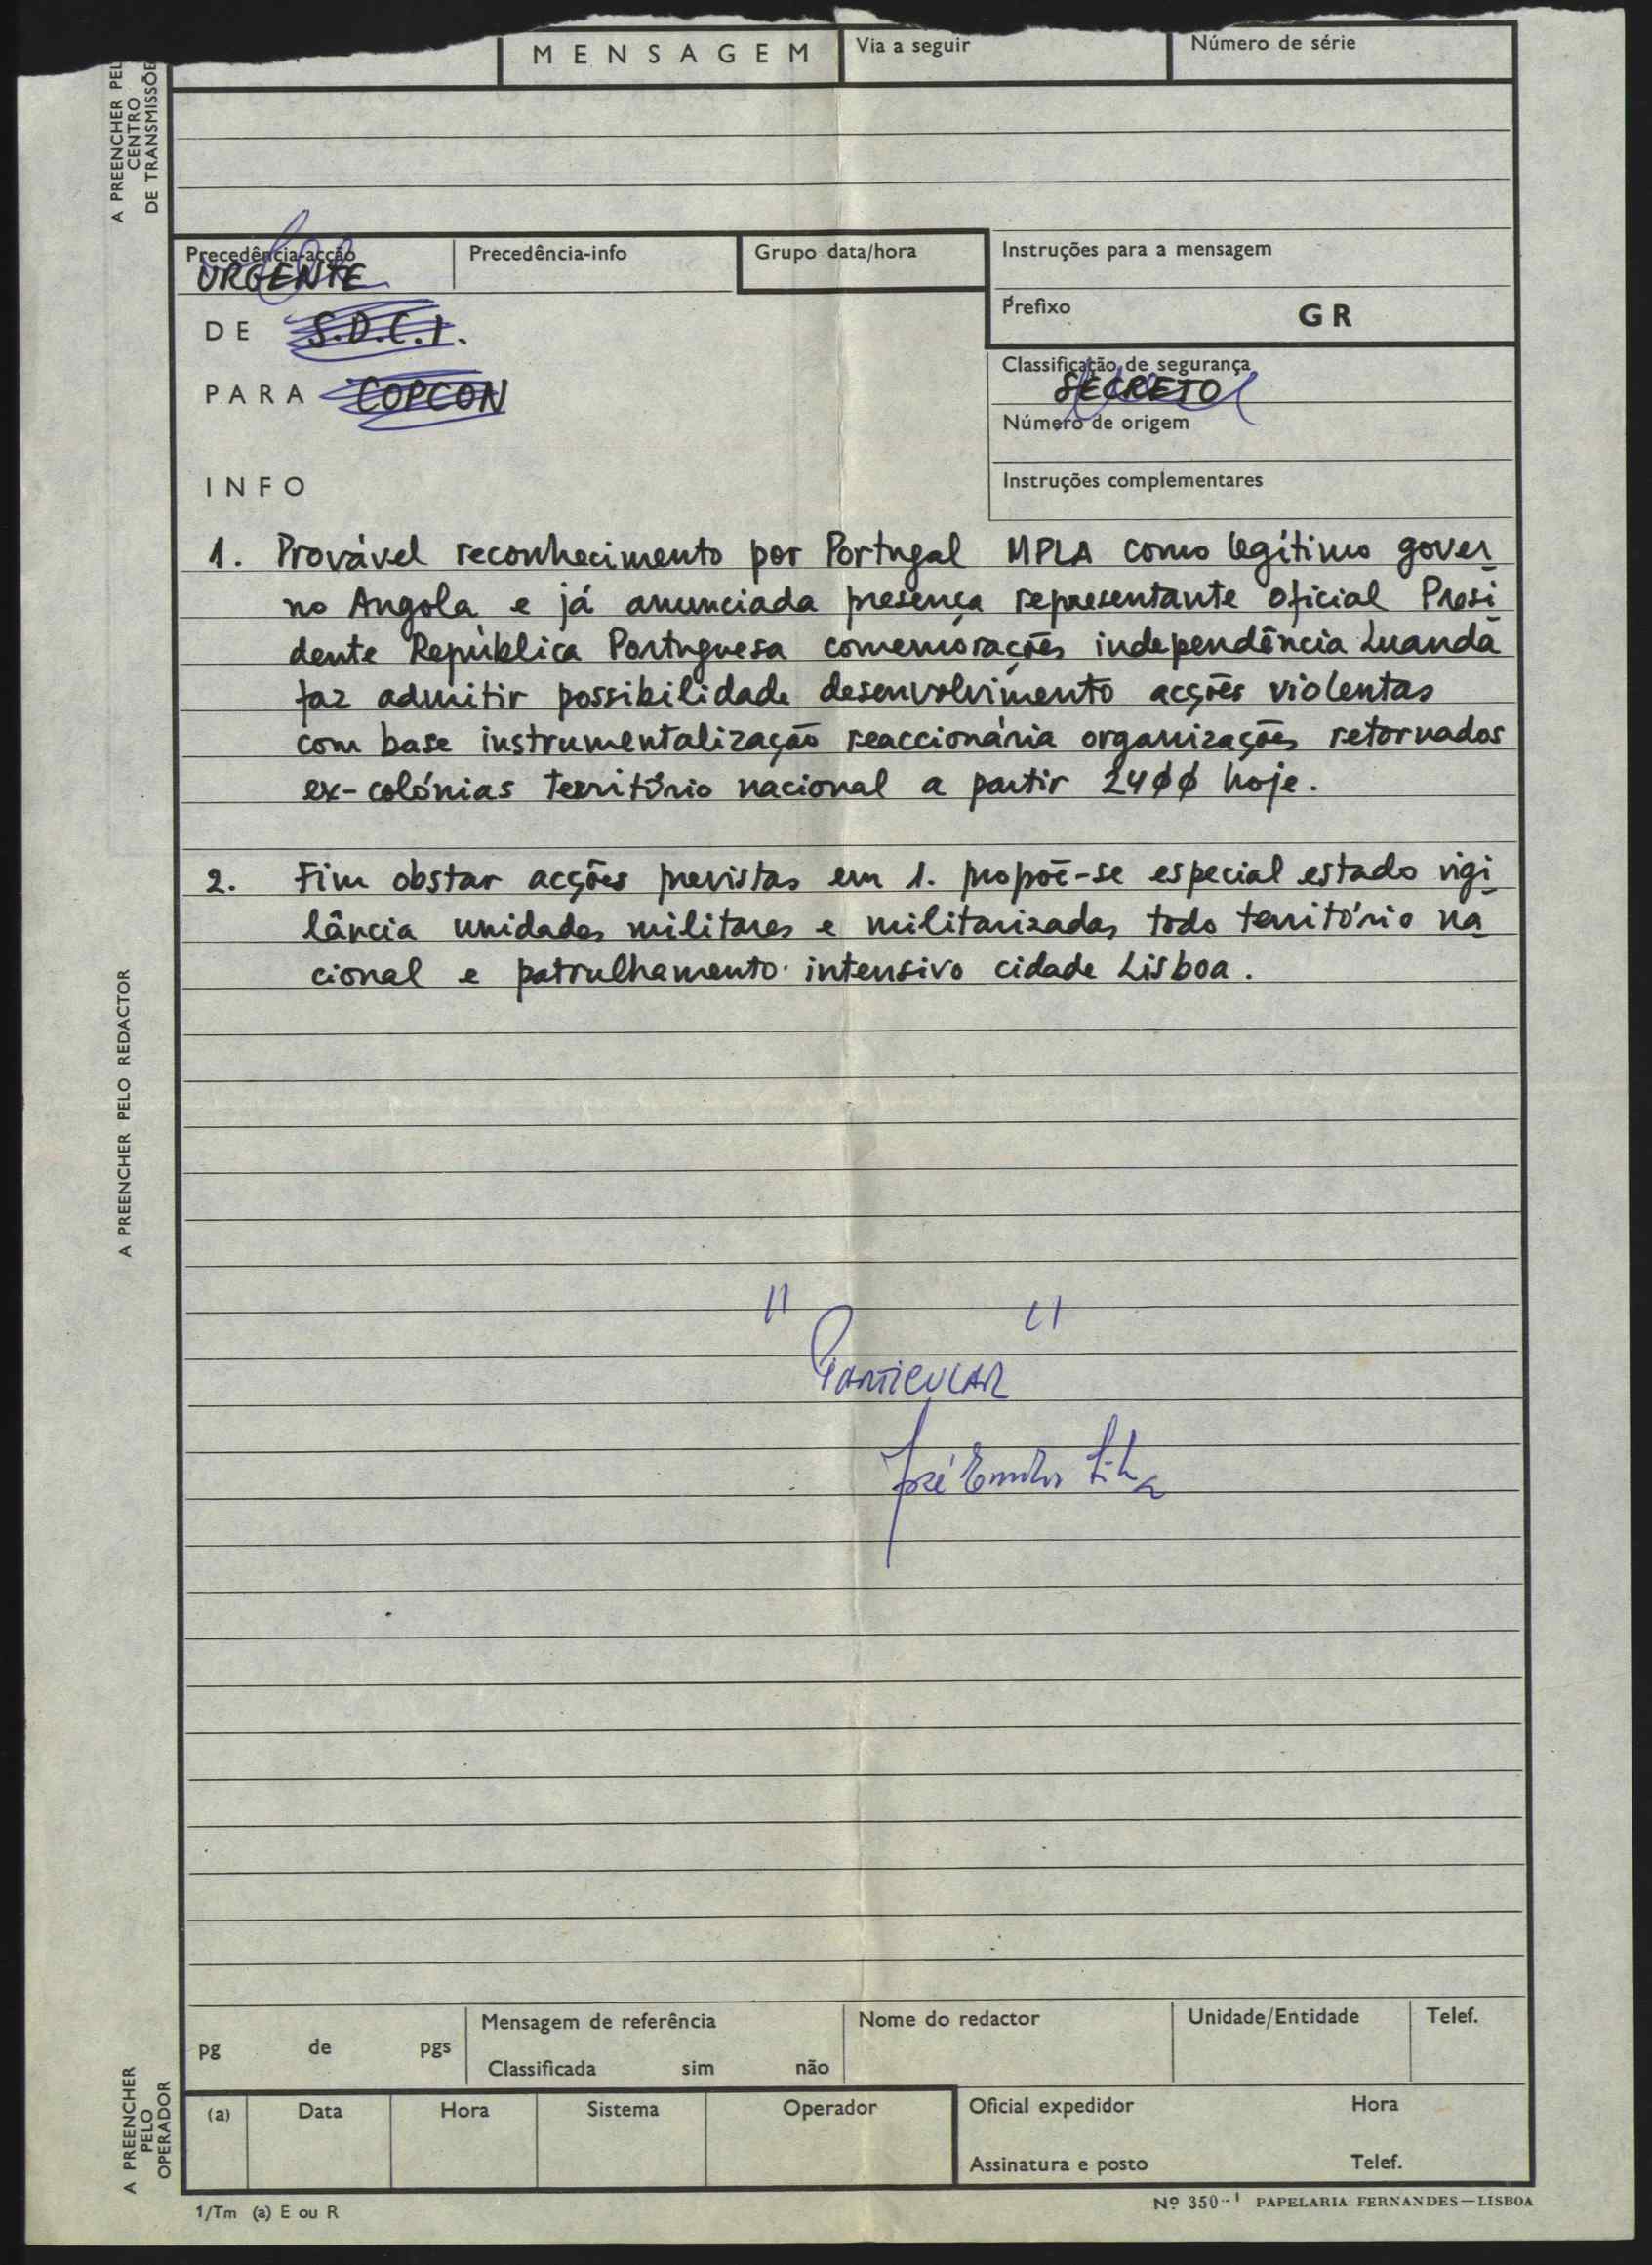 MENSAGEM
Via a seguir
Número de série
A PREENCHER PEL
CENTRO
DE TRANSMISSÕE
Precedência-acção
URGENTE
Precedência-info
Grupo data/hora
Instruções para a mensagem
Prefixo
GR
DE S.D.C.I.
PARA COPCON
Classificação de segurança
SECRETO
Número de origem
INFO
Instruções complementares
1. Provável reconhecimento por Portugal MPLA como legítimo gover
no Angola e já anunciada presença representante oficial Presi
dente República Portuguesa comemorações independência Luanda
faz admitir possibilidade desenvolvimento acções violentas
com base instrumentalização reaccionária organizações retornados
ex-colónias território nacional a partir 24ØØ hoje.
2. Fim obstar acções previstas em 1. propõe-se especial estado vigi
lância unidades militares e militarizadas todo território na
cional e patrulhamento intensivo cidade Lisboa.
A PREENCHER PELO REDACTOR
" "
PARTICULAR
José Emílio Silva
pg de pgs
Mensagem de referência
Classificada sim não
Nome do redactor
Unidade/Entidade
Telef.
A PREENCHER
PELO
OPERADOR
(a)
Data
Hora
Sistema
Operador
Oficial expedidor
Hora
Assinatura e posto
Telef.
1/Tm (a) E ou R
Nº 350-1 PAPELARIA FERNANDES—LISBOA